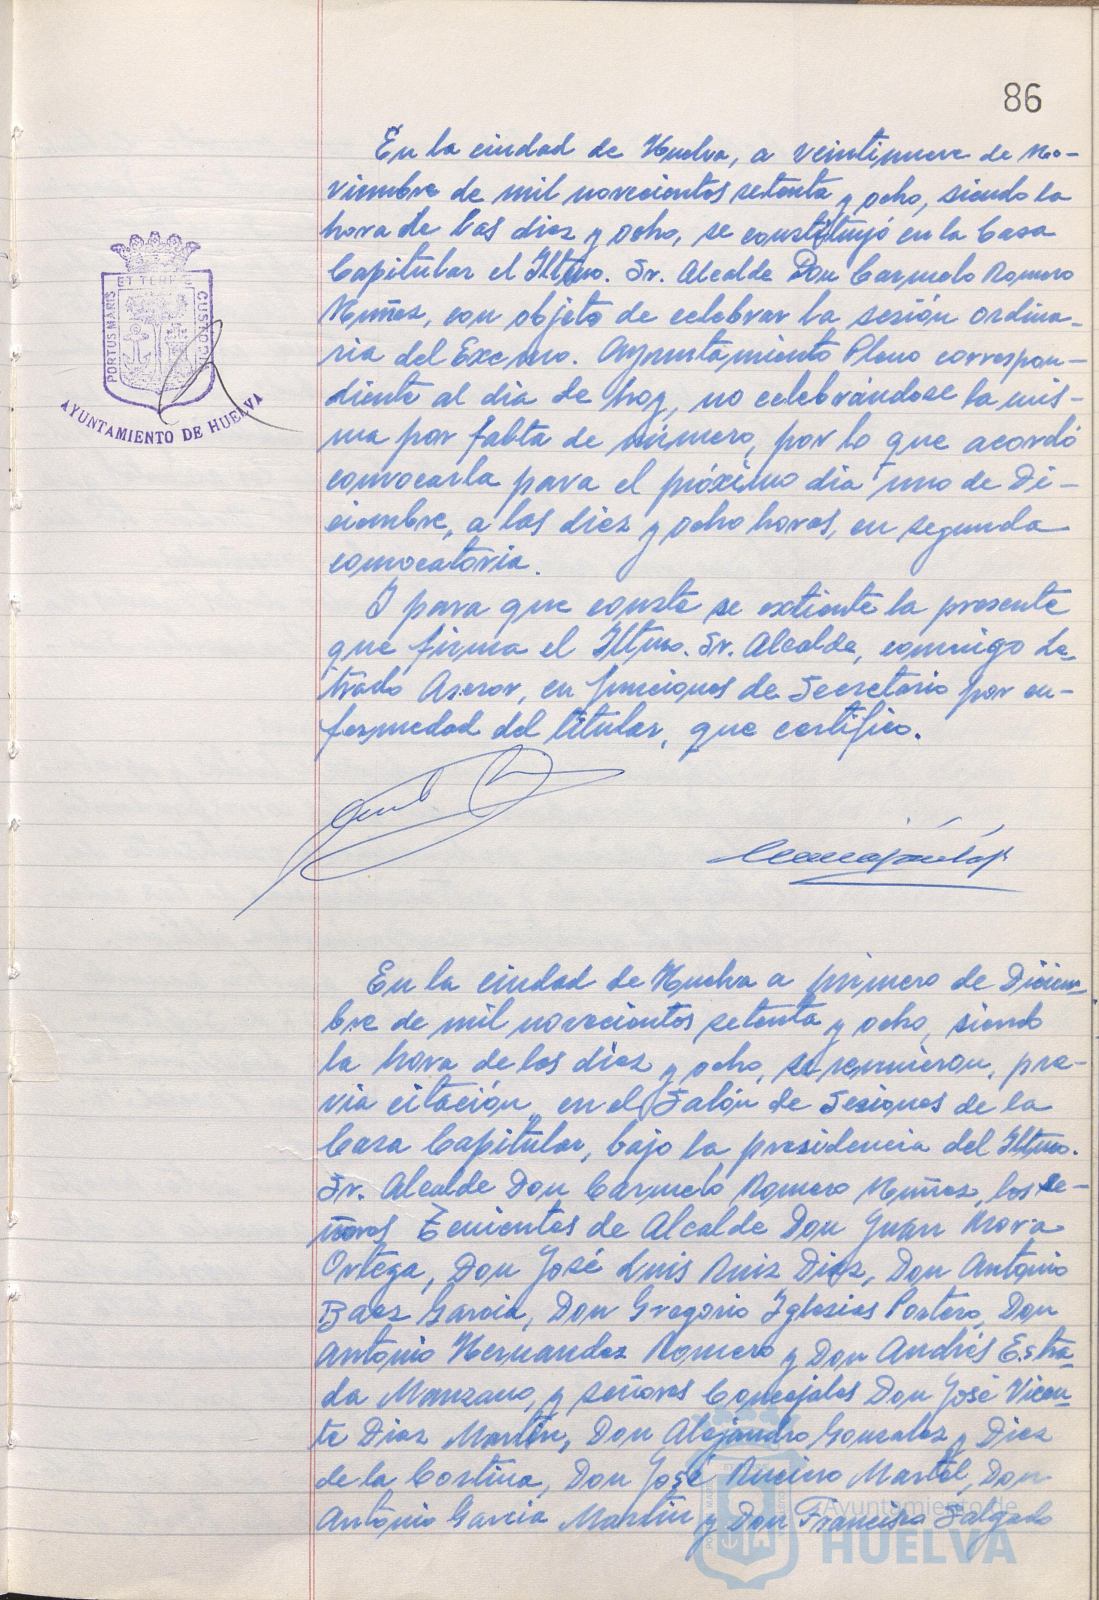 86
En la ciudad de Huelva, a veintinueve de No-
viembre de mil novecientos setenta y ocho, siendo la
hora de las diez y ocho, se constituyó en la Casa
Capitular el Iltmo. Sr. Alcalde Don Carmelo Romero
Nuñez, con objeto de celebrar la sesión ordina-
ria del Excmo. Ayuntamiento Pleno correspon-
diente al dia de hoy, no celebrándose la mis-
ma por falta de número, por lo que acordó
convocarla para el próximo dia uno de Di-
ciembre, a las diez y ocho horas, en segunda
convocatoria.
Y para que conste se extiente la presente
que firma el Iltmo. Sr. Alcalde, conmigo Le-
trado Asesor, en funciones de Secretario por en-
fermedad del titular, que certifico.
PORTUS MARIS ET TERRE CUSTODIA
AYUNTAMIENTO DE HUELVA
En la ciudad de Huelva a primero de Diciem-
bre de mil novecientos setenta y ocho, siendo
la hora de las diez y ocho, se reunieron, pre-
via citación, en el Salón de Sesiones de la
Casa Capitular, bajo la presidencia del Iltmo.
Sr. Alcalde Don Carmelo Romero Nuñez, los se-
ñores Tenientes de Alcalde Don Juan Mora
Ortega, Don José Luis Ruiz Diaz, Don Antonio
Baez Garcia, Don Gregorio Iglesias Portero, Don
Antonio Hernandez Romero y Don Andrés Estra-
da Manzano, y señores Concejales Don José Vicen-
te Diaz Martin, Don Alejandro Gonzalez y Diez
de la Cortina, Don José Martel, Don
Antonio Garcia Martin y Don Francisco Salgado
Ayuntamiento de
HUELVA